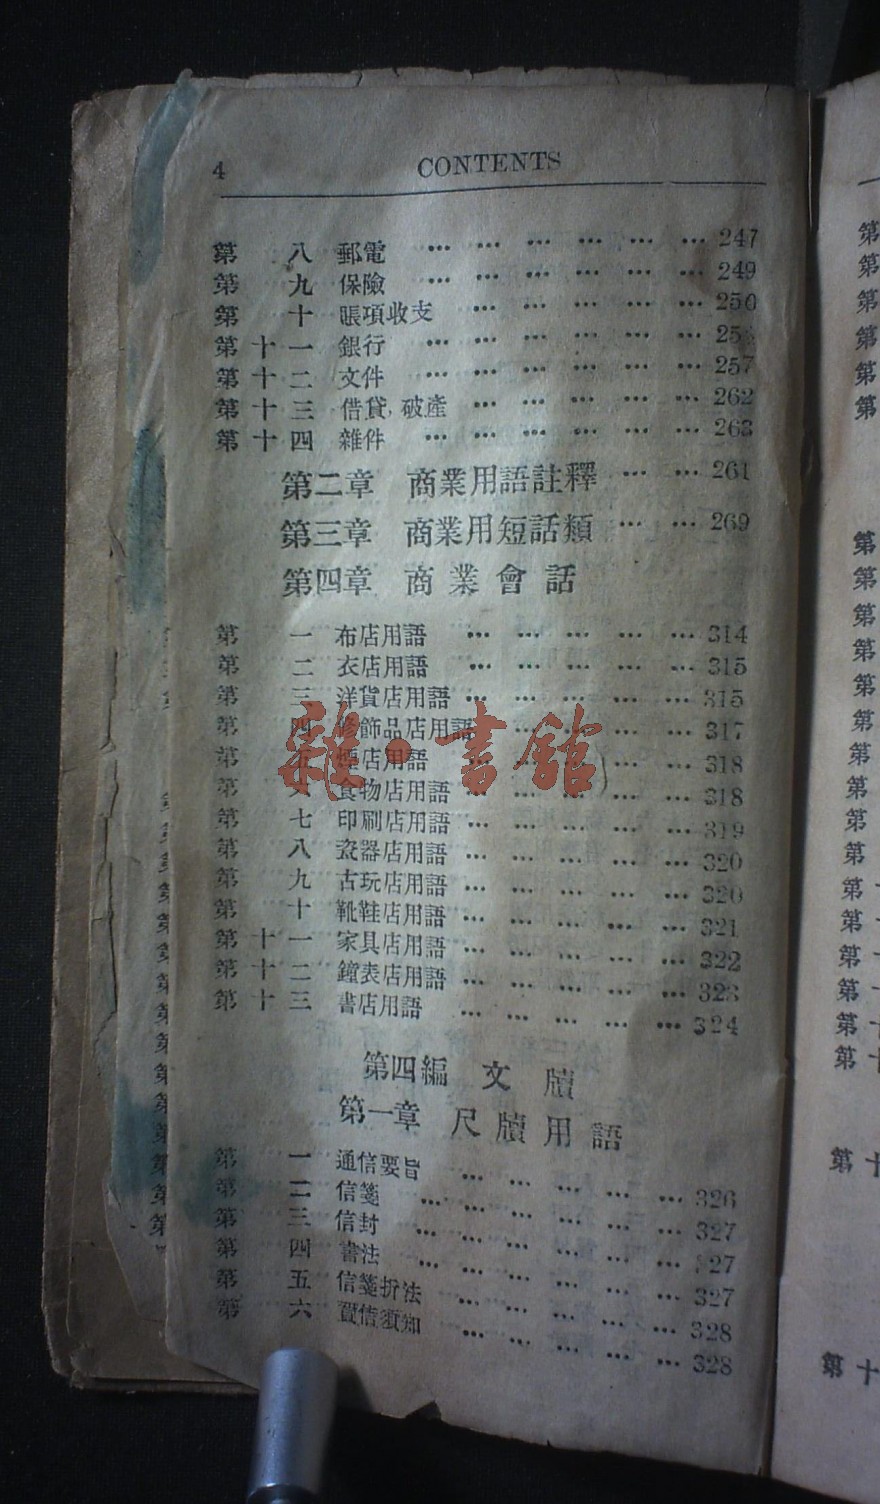 4 CONTENTS
第 八 郵電 … … … … … … 247
第 九 保險 … … … … … … 249
第 十 賬項收支 … … … … … 250
第十一 銀行 … … … … … …
第十二 文件 … … … … … … 257
第十三 借貸，破產 … … … … … 262
第十四 雜件 … … … … … … 263
第二章 商業用語註釋 … … 261
第三章 商業用短話類 … … 269
第四章 商業會話
第 一 布店用語 … … … … … 314
第 二 衣店用語 … … … … … 315
第 三 洋貨店用語 … … … … … 315
第 四 修飾品店用語 … … … … 317
第 五 煙店用語 … … … … … 318
第 六 食物店用語 … … … … … 318
第 七 印刷店用語 … … … … … 319
第 八 瓷器店用語 … … … … … 320
第 九 古玩店用語 … … … … … 320
第 十 靴鞋店用語 … … … … … 321
第十一 家具店用語 … … … … … 322
第十二 鐘表店用語 … … … … … 323
第十三 書店用語 … … … … … 324
第四編 文牘
第一章 尺牘用語
第 一 通信要旨 … … … … … 326
第 二 信箋 … … … … … … 327
第 三 信封 … … … … … … 327
第 四 書法 … … … … … … 327
第 五 信箋折法 … … … … … 328
第 六 信須知 … … … … … 328
雜·書館